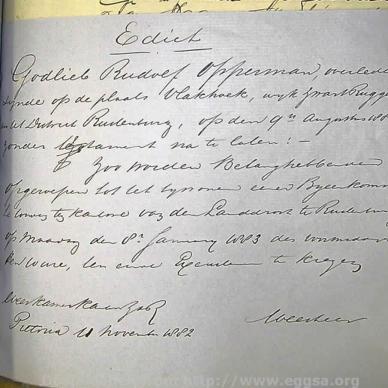 Edict
Godlieb Rudolf Opperman, overlede
zynde op de plaats Vlakhoek, wyk Zwart Rugge
in het District Rustenburg, op den 9en Augustus 18
zonder testament na te laten:-
Zoo worden Belanghebbenen
opgeroepen tot het bywonen eener Byeenkoms
ten kantore van den Landdrost te Rustenb
op Maandag den 8n January 1883 des voormiddags
ten ure, ten einde Executeur te kiezen
Weeskamer Kantoor ZAR
Pretoria 11 November 1882
Weesheer
http://www.eggsa.org